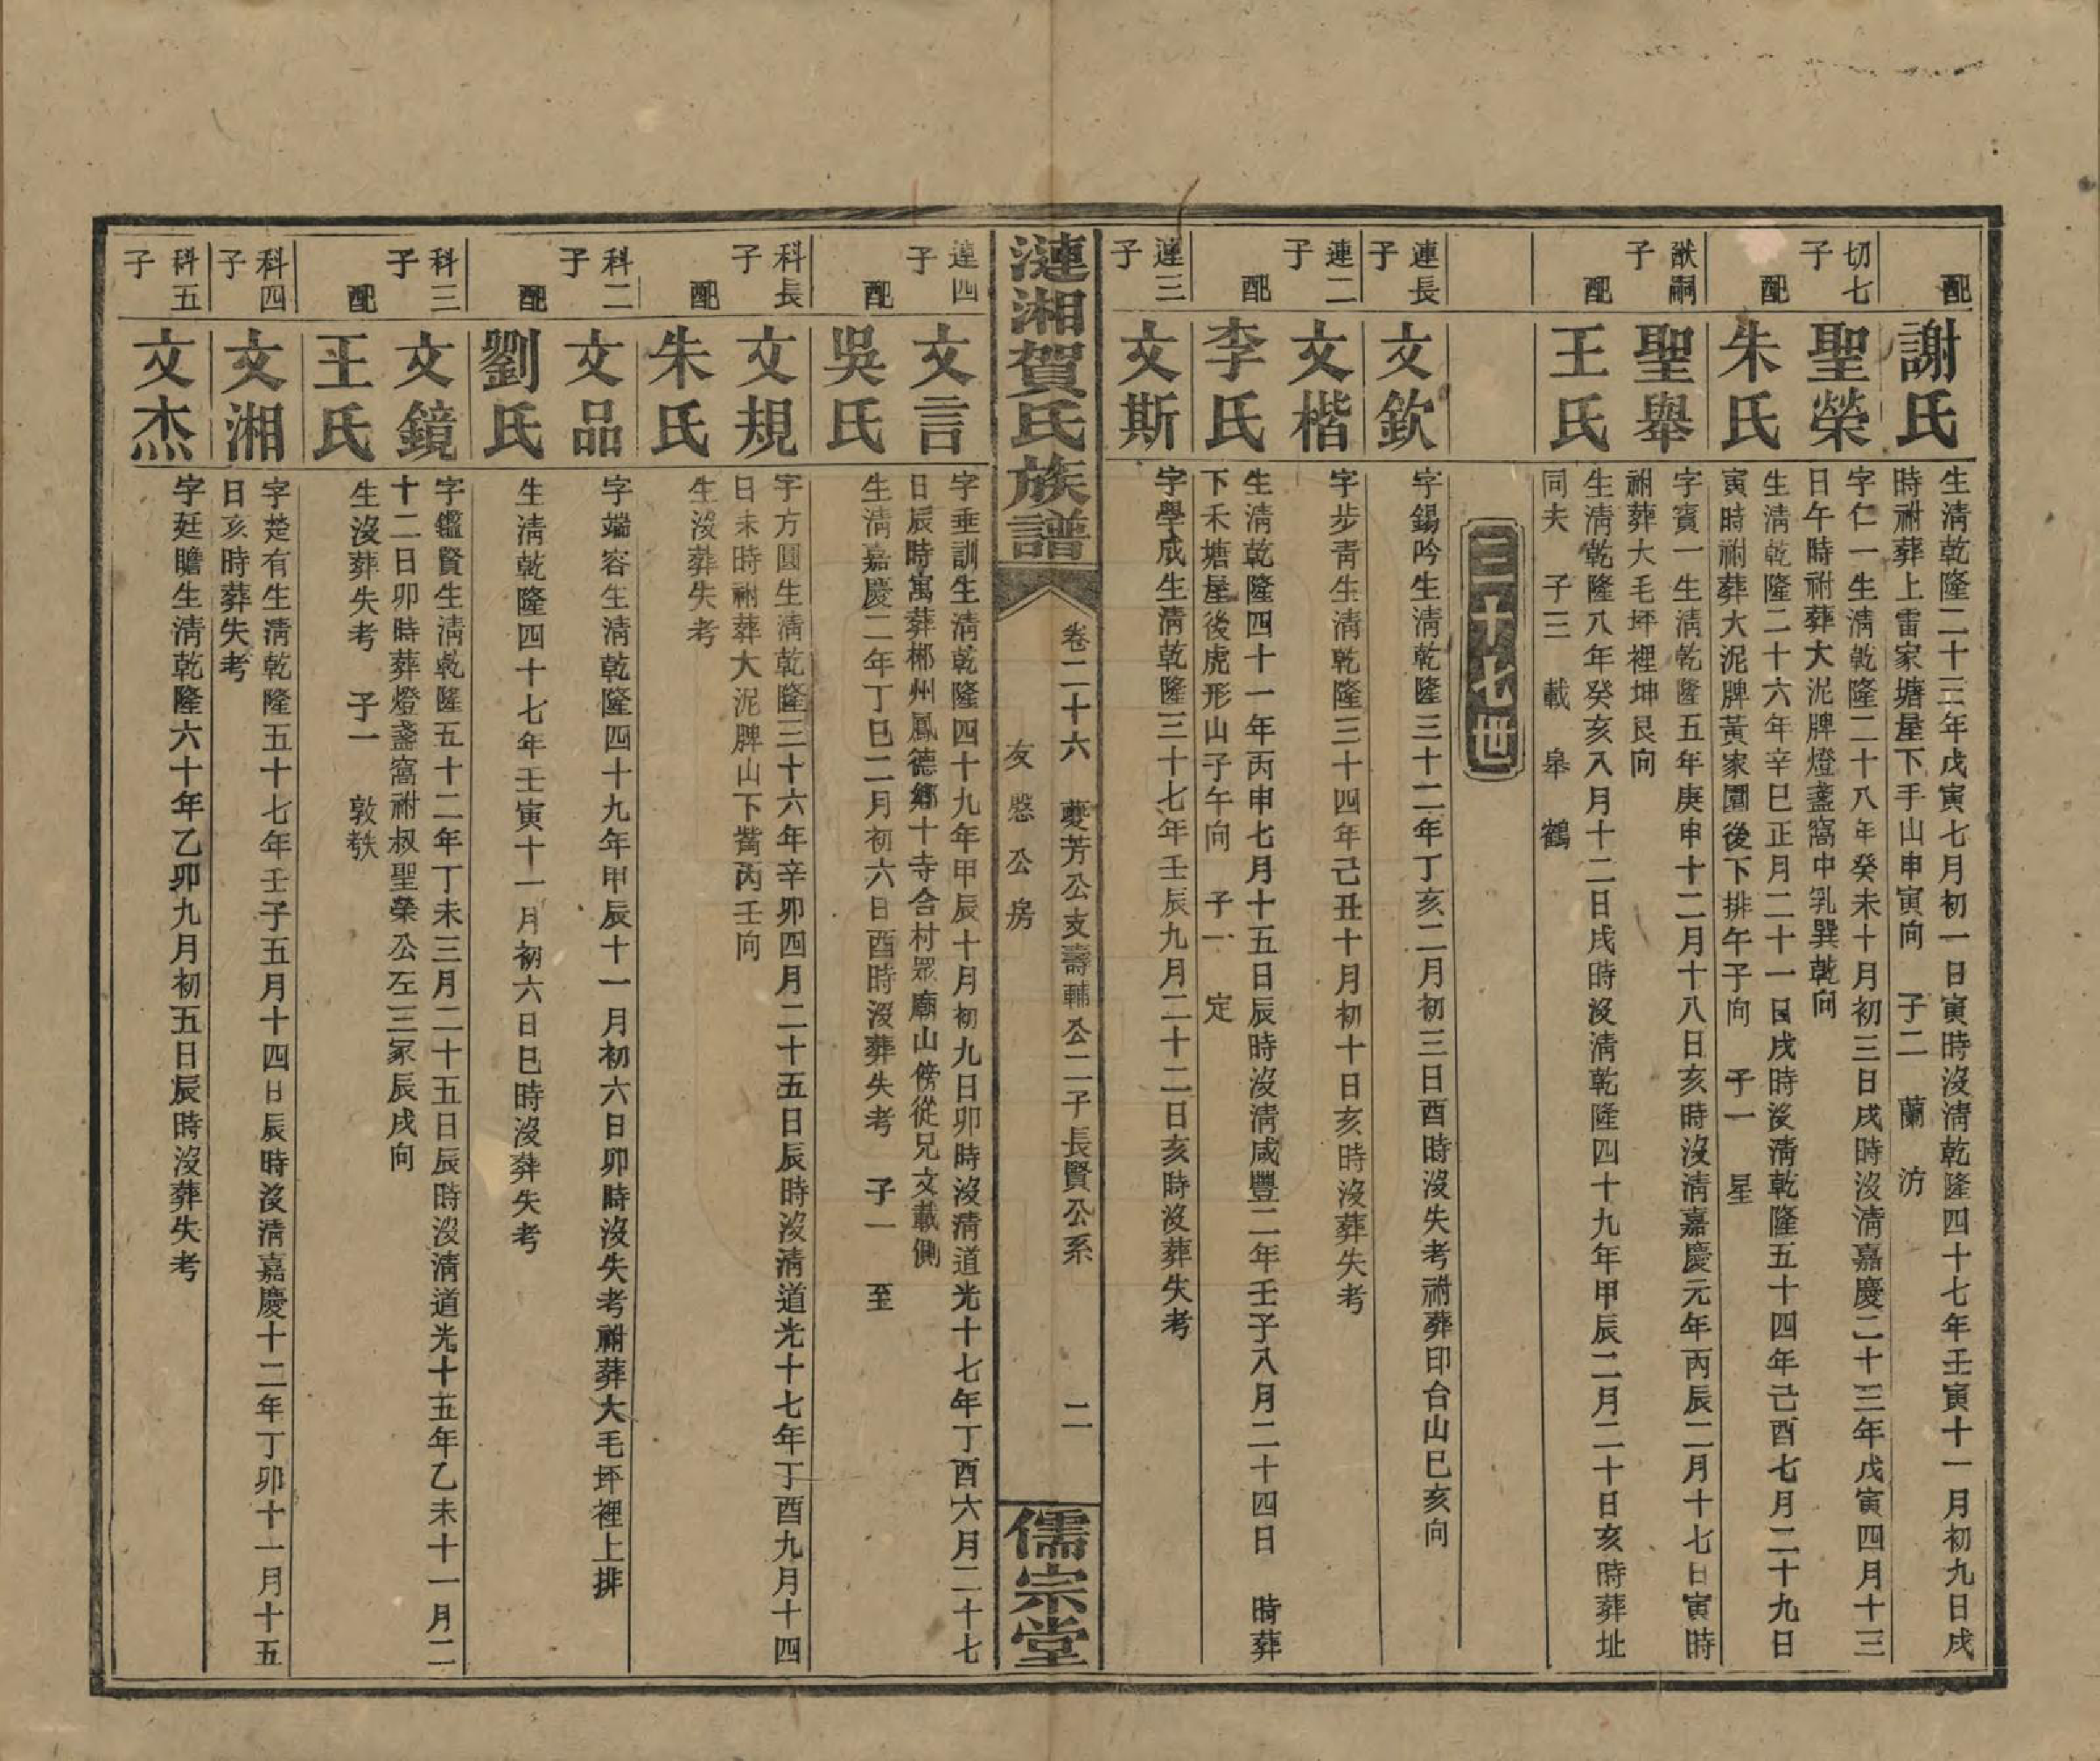 配
謝氏
生淸乾隆二十三年戊寅七月初一日寅時沒淸乾隆四十七年壬寅十一月初九日戌
時祔葬上雷家塘屋下手山申寅向 子二 蘭 汸
切七子
聖榮
字仁一生淸乾隆二十八年癸未十月初三日戌時沒淸嘉慶二十三年戊寅四月十三
日午時祔葬大泥脾燈盞窩中乳巽乾向
配
朱氏
生淸乾隆二十六年辛巳正月二十一日戌時沒淸乾隆五十四年己酉七月二十九日
寅時祔葬大泥脾黃家園後下排午子向 子一 星
猷嗣子
聖舉
字賓一生淸乾隆五年庚申十二月十八日亥時沒淸嘉慶元年丙辰二月十七日寅時
祔葬大毛坪裡坤艮向
配
王氏
生淸乾隆八年癸亥八月十二日戌時沒淸乾隆四十九年甲辰二月二十日亥時葬址
同夫 子三 載 皋 鶴
三十七世
連長子
文欽
字錫吟生淸乾隆三十二年丁亥二月初三日酉時沒失考祔葬印台山巳亥向
連二子
文楷
字步靑生淸乾隆三十四年己丑十月初十日亥時沒葬失考
配
李氏
生淸乾隆四十一年丙申七月十五日辰時沒淸咸豐二年壬子八月二十四日 時葬
下禾塘屋後虎形山子午向 子一 定
連三子
文斯
字學成生淸乾隆三十七年壬辰九月二十二日亥時沒葬失考
漣湘賀氏族譜
卷二十六 夔芳公支壽輔公二子長賢公系 二
友愍公房
儒宗堂
連四子
文言
字垂訓生淸乾隆四十九年甲辰十月初九日卯時沒淸道光十七年丁酉六月二十七
日辰時寓葬郴州鳳德鄉十寺合村眾廟山傍從兄文載側
配
吳氏
生淸嘉慶二年丁巳二月初六日酉時沒葬失考 子一 至
科長子
文規
字方圓生淸乾隆三十六年辛卯四月二十五日辰時沒淸道光十七年丁酉九月十四
日未時祔葬大泥脾山下嘴丙壬向
配
朱氏
生沒葬失考
科二子
文品
字端容生淸乾隆四十九年甲辰十一月初六日卯時沒失考祔葬大毛坪裡上排
配
劉氏
生淸乾隆四十七年壬寅十一月初六日巳時沒葬失考
科三子
文鏡
字鑑賢生淸乾隆五十二年丁未三月二十五日辰時沒淸道光十五年乙未十一月二
十二日卯時葬燈盞窩祔叔聖榮公左三冢辰戌向
配
王氏
生沒葬失考 子一 敦
科四子
文湘
字楚有生淸乾隆五十七年壬子五月十四日辰時沒淸嘉慶十二年丁卯十一月十五
日亥時葬失考
科五子
文杰
字廷瞻生淸乾隆六十年乙卯九月初五日辰時沒葬失考